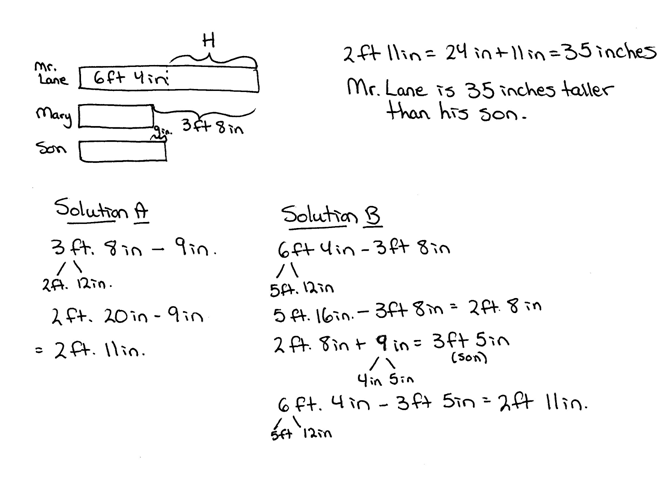 H
Mr. Lane 6ft 4in
Mary 3ft 8in
9in.
Son
2ft 11in = 24in + 11in = 35 inches
Mr. Lane is 35 inches taller
than his son.
Solution A
3ft. 8in - 9in.
2ft. 12in.
2ft. 20in - 9in
= 2ft. 11in.
Solution B
6ft 4in - 3ft 8in
5ft. 12in
5ft. 16in. - 3ft 8in = 2ft. 8in
2ft. 8in + 9in = 3ft 5in
(son)
4in 5in
6ft. 4in - 3ft 5in = 2ft 11in.
5ft 12in